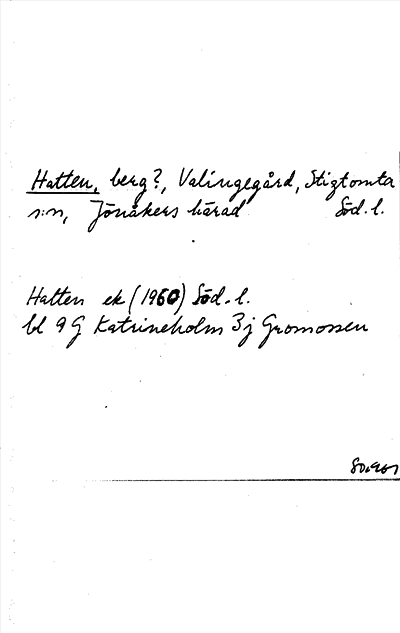 Hatten, berg?, Valingegård, Stigtomta
s:n, Jönåkers härad Söd. l.
Hatten ek (1960) Söd. l.
bl 9 G Katrineholm 3 j Gromossen